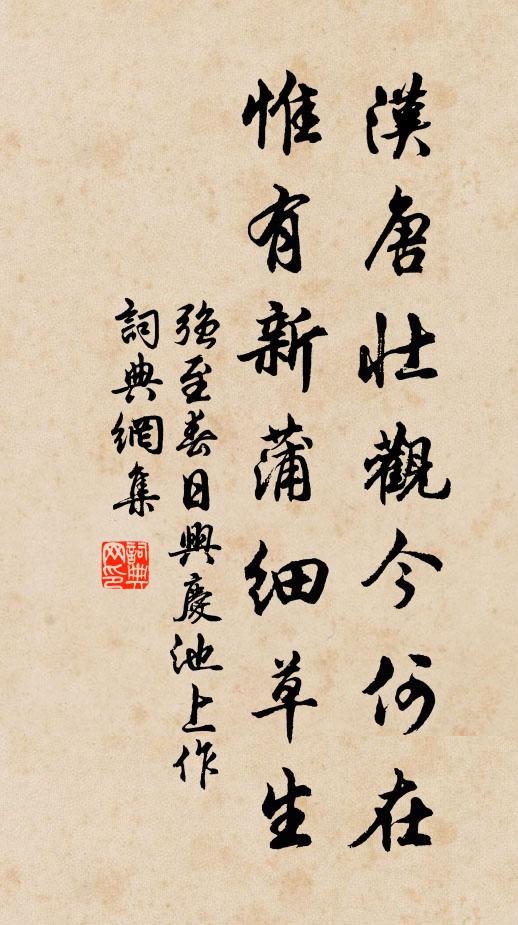 漢唐壯觀今何在
惟有新蒲細草生
強至春日興慶池上作
詞典網集
詞典網印